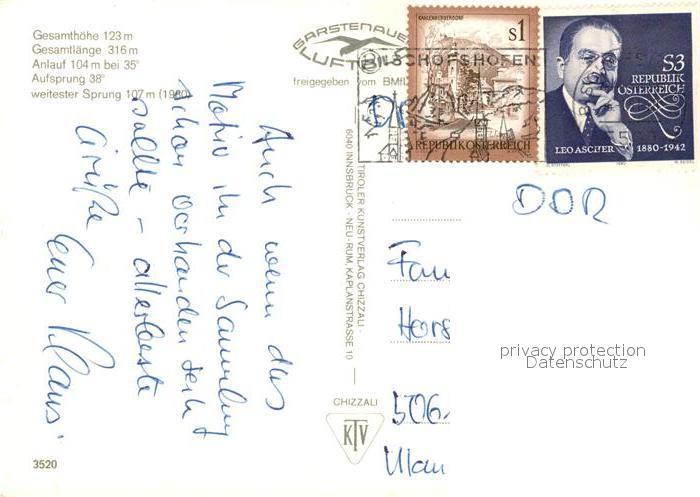 Gesamthöhe 123 m
Gesamtlänge 316 m
Anlauf 104 m bei 35°
Aufsprung 38°
weitester Sprung 107 m (1980)
GARSTENAUER
LUFTBILD
freigegeben vom BMfL
KAHLENBERGERDORF
S1
REPUBLIK ÖSTERREICH
BISCHOFSHOFEN
S3
REPUBLIK
ÖSTERREICH
LEO ASCHER 1880-1942
Auch wenn das
Motiv in der Sammlung
schon vorhanden sein
sollte - allerbeste
Grüße
Euer Klaus.
TIROLER KUNSTVERLAG CHIZZALI -
6040 INNSBRUCK - NEU-RUM, KAPLANSTRASSE 10
DDR
Fam
Hors
506.
CHIZZALI
KTV
3520
privacy protection
Datenschutz